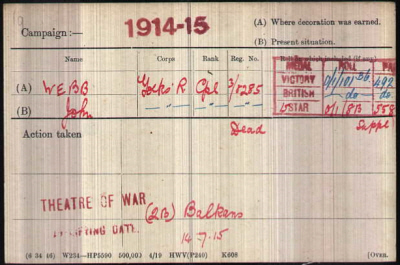 1914-15
Campaign:—
(A) Where decoration was earned.
(B) Present situation.
Name Corps Rank Reg. No.
MEDAL ROLL PAGE
(A) WEBB Yorks R Cpl 3/1285
VICTORY 0/1/101 B6 492
(B) John — " — — " — — " —
BRITISH — do — do
15 STAR 0/1/8B 558
Action taken Dead Suppl
THEATRE OF WAR (2B) Balkans
QUALIFYING DATE. 14-7-15
(6 34 46) W234—HP5590 500,000 4/19 HWV(P240) K608 (Over.